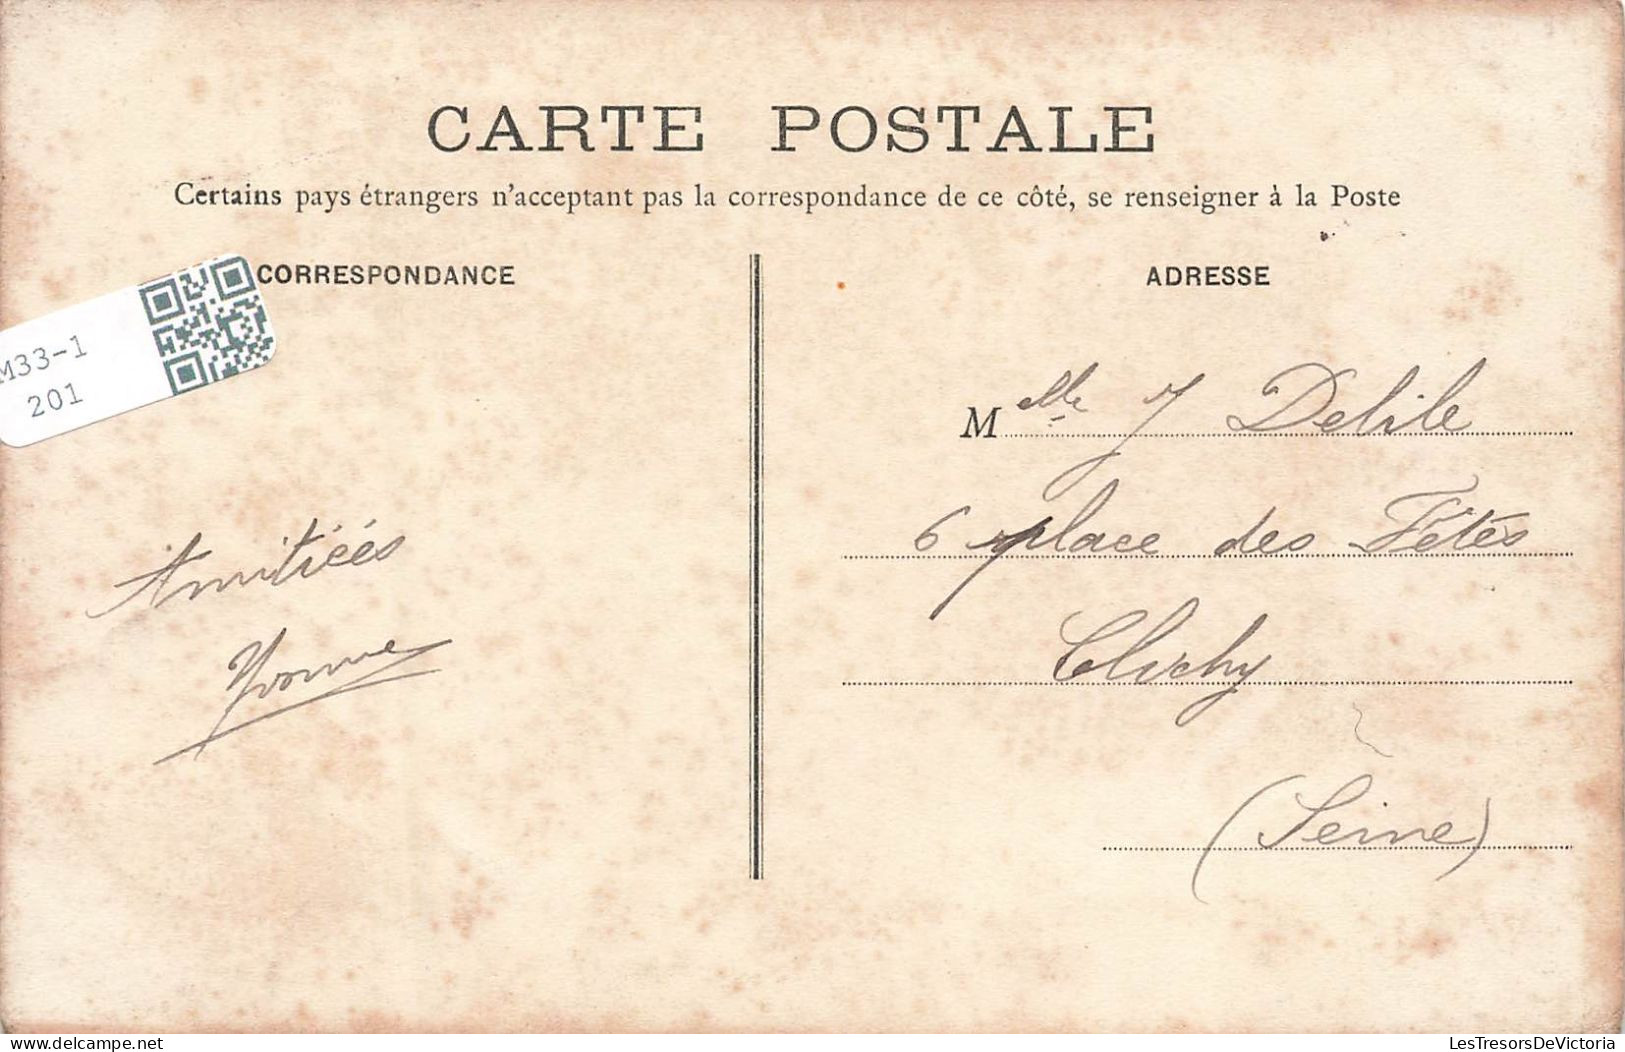 CARTE POSTALE
Certains pays étrangers n'acceptant pas la correspondance de ce côté, se renseigner à la Poste
CORRESPONDANCE
ADRESSE
M33-1
201
Melle J Delile
6 place des Fêtes
Clichy
(Seine)
Amitiées
Yvonne
delcampe.net
LesTresorsDeVictoria